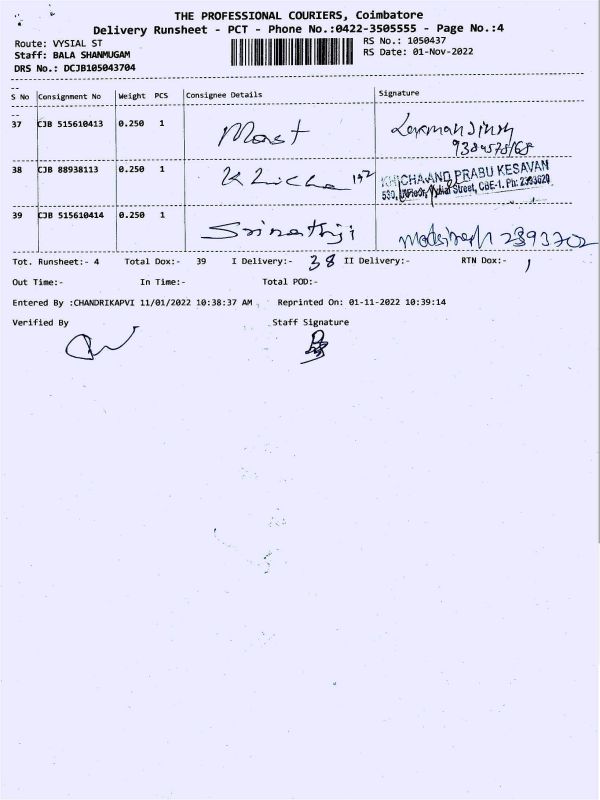 THE PROFESSIONAL COURIERS, Coimbatore
Delivery Runsheet - PCT - Phone No.:0422-3505555 - Page No.:4
Route: VYSIAL ST
RS No.: 1050437
Staff: BALA SHANMUGAM
RS Date: 01-Nov-2022
DRS No.: DCJB105043704
S No Consignment No Weight PCS Consignee Details Signature
37 CJB 515610413 0.250 1 Most Laxman Singh
38 CJB 88938113 0.250 1 Khicha KHICHA AND PRABU KESAVAN
530, Street, CBE-1. Ph: 2393620
39 CJB 515610414 0.250 1 Srinathji 2393702
Tot. Runsheet:- 4 Total Dox:- 39 I Delivery:- 38 II Delivery:- RTN Dox:- 1
Out Time:- In Time:- Total POD:-
Entered By :CHANDRIKAPVI 11/01/2022 10:38:37 AM Reprinted On: 01-11-2022 10:39:14
Verified By Staff Signature